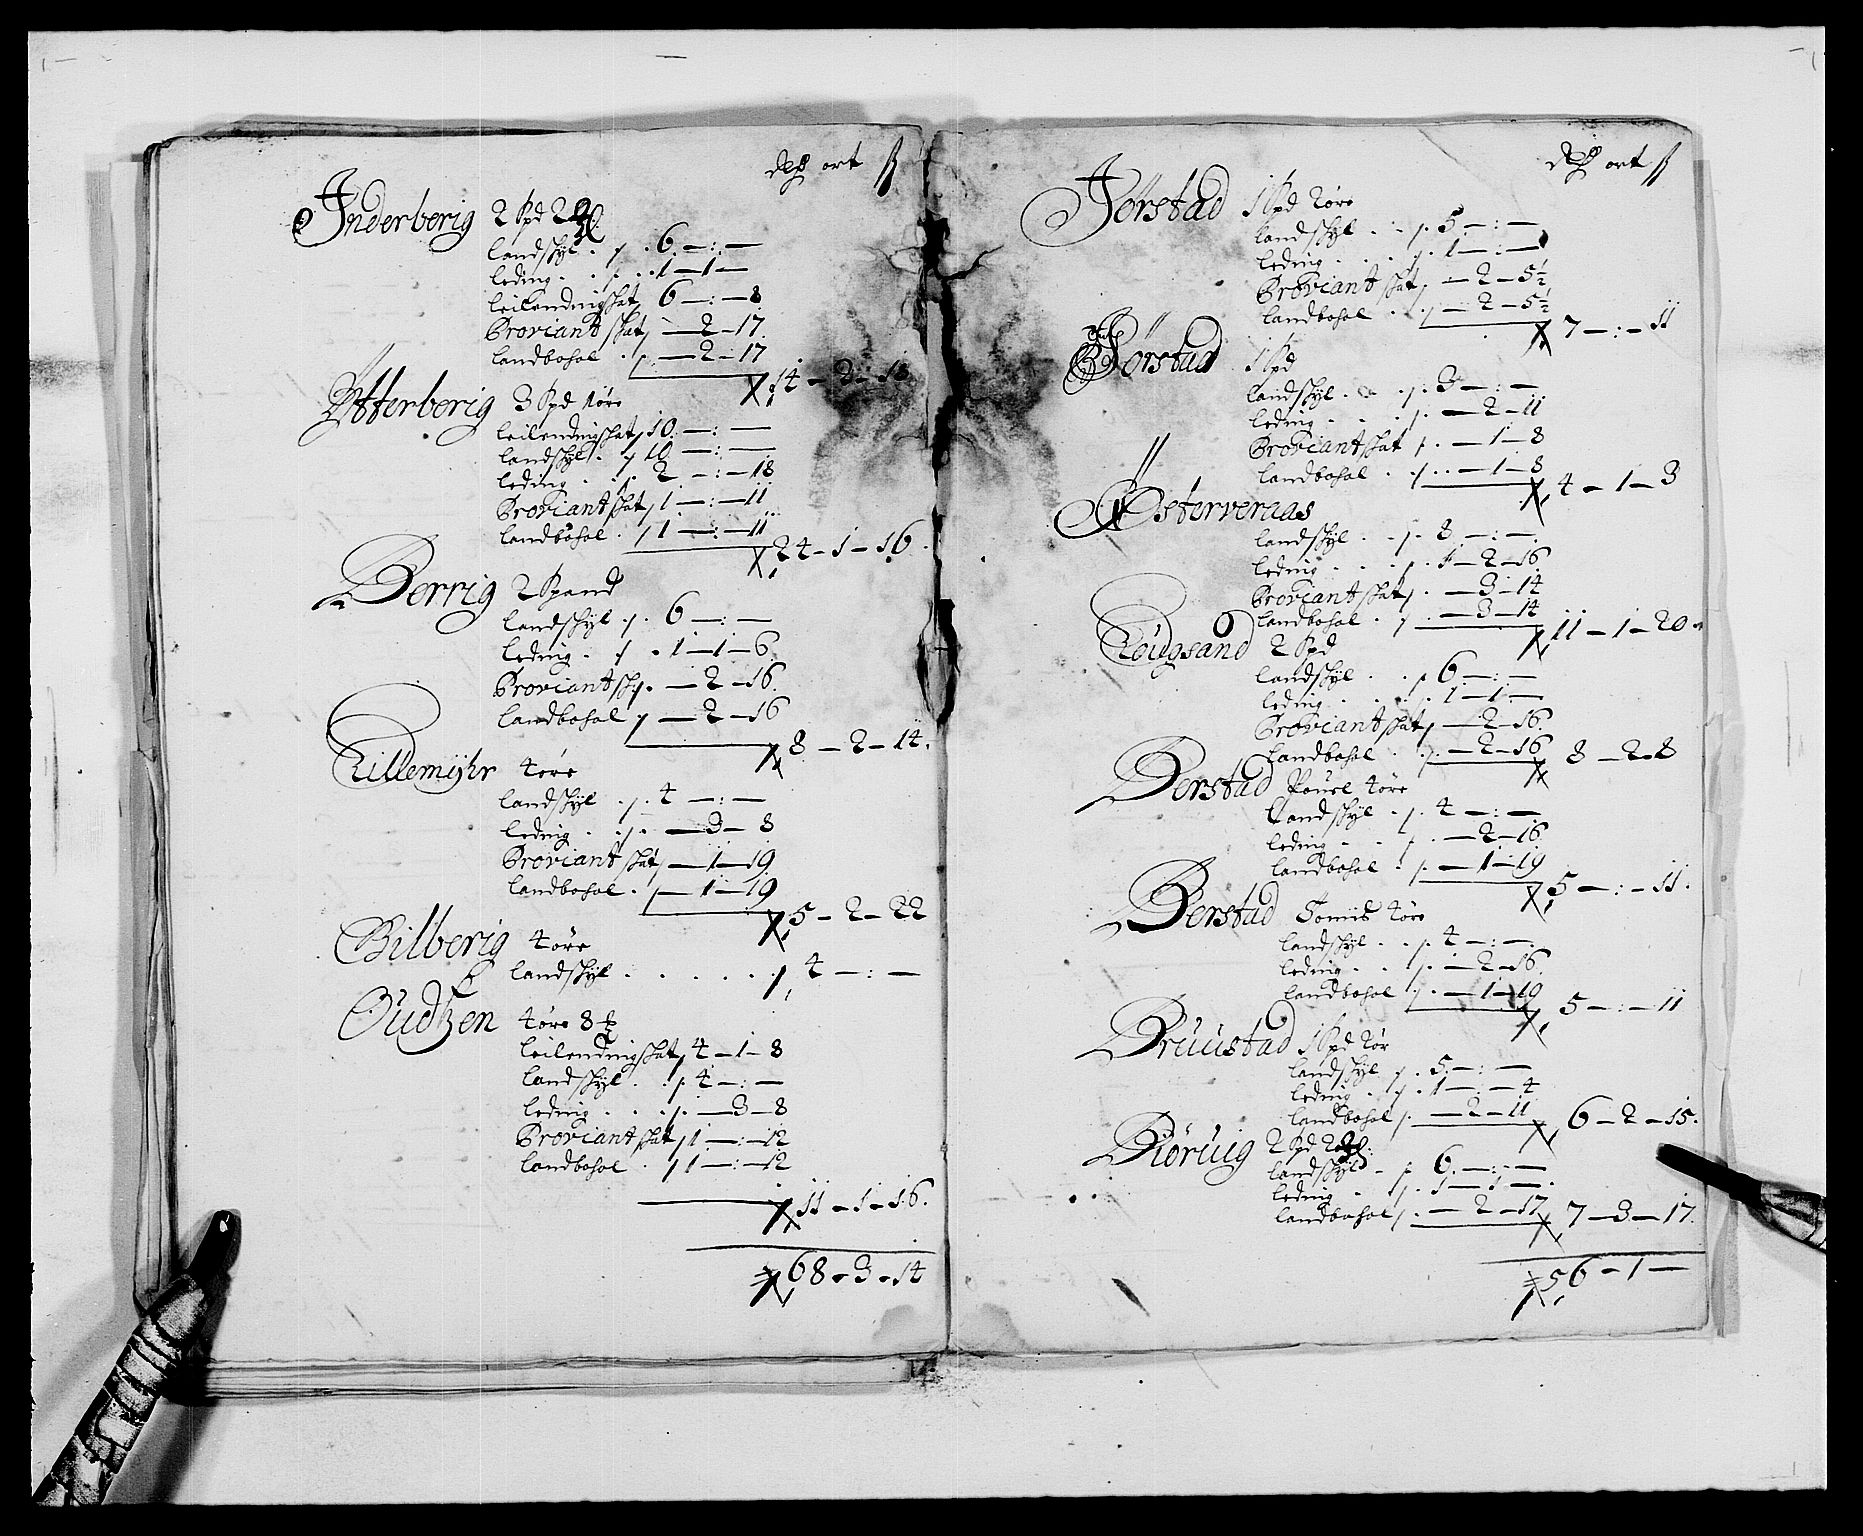 ort ß
Inderberig 2 Spd 2
landskyl . 6 – : –
leding . . 1 – 1 –
leilendingskat 6 – : – 8
Proviantskat – 2 – 17
landbohol . – 2 – 17
14 – 2 – 18
Ytterberig 3 Spd 1øre
leilendingskat 10 – : –
landskyl . 10 – : –
leding . . 2 – : – 18
Proviantskat 1 – : – 11
landbohol . 1 – : – 11
24 – 1 – 16
Berrig 2 Spand
landskyl . 6 – : –
leding . . 1 – 1 – 6
Proviantsk. – 2 – 16
landbohol – 2 – 16
8 – 2 – 14
Lillemyhr 4øre
landskyl . 4 – : –
leding . . – 3 – 8
Proviantskat – 1 – 19
landbohol . – 1 – 19
5 – 2 – 22
Bilberig 4øre
landskyl . . . . . 4 – : –
Oudtzen 4øre 8
leilendingskat 4 – 1 – 8
landskyl . . 4 – : –
leding . . . – 3 – 8
Proviantskat 1 – : – 12
landbohol . 1 – : – 12
11 – 1 – 16
68 – 3 – 14
ort ß
Jørstad 1 Spd 2øre
landskyl . . 5 – : –
leding . . . 1 – : –
Proviantskat – 2 – 5½
landbohol . – 2 – 5½
7 – : – 11
Jørstad 1 Spd
landskyl . . 3 – : –
leding . . . – 2 – 11
Proviantskat . – 1 – 8
landbohol . . – 1 – 8
4 – 1 – 3
Østerveraas
landskyl . . 8 – : –
leding . . . – 2 – 16
Proviantskat . – 3 – 14
landbohol . – 3 – 14
11 – 1 – 20
Lougsand 2 Spd
landskyl . . 6 – : –
leding . . . 1 – 1 –
Proviantskat – 2 – 16
landbohol . . – 2 – 16
8 – 2 – 8
Berstad Pouel 4øre
landskyl . . 4 – : –
leding . . . – 2 – 16
landbohol . . – 1 – 19
5 – : – 11
Berstad Tomis 4øre
landskyl . . 4 – : –
leding . . . – 2 – 16
landbohol . . – 1 – 19
5 – : – 11
Bruustad 1 Spd 2ør
landskyl . 5 – : –
leding . . 1 – : – 4
landbohol . – 2 – 11
6 – 2 – 15
Kiøruig 2 Spd 2
landskyl – . 6 – : –
leding . . 1 – 1 –
landbohol . – 2 – 17
7 – 3 – 17
56 – 1 –